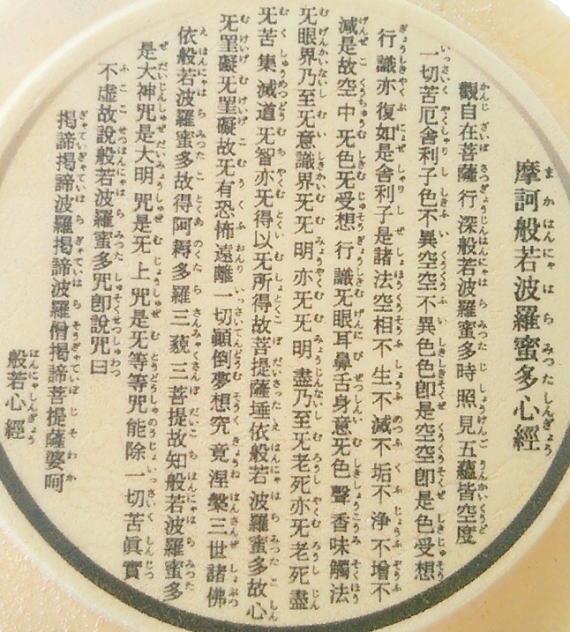 摩訶般若波羅蜜多心經
觀自在菩薩行深般若波羅蜜多時照見五蘊皆空度
一切苦厄舎利子色不異空空不異色色卽是空空卽是色受想
行識亦復如是舎利子是諸法空相不生不滅不垢不浄不增不
減是故空中无色无受想行識无眼耳鼻舌身意无色聲香味觸法
无眼界乃至无意識界无无明亦无无明盡乃至无老死亦无老死盡
无苦集滅道无智亦无得以无所得故菩提薩埵依般若波羅蜜多故心
无罣礙无罣礙故无有恐怖遠離一切顚倒夢想究竟涅槃三世諸佛
依般若波羅蜜多故得阿耨多羅三藐三菩提故知般若波羅蜜多
是大神咒是大明咒是无上咒是无等等咒能除一切苦眞實
不虛故說般若波羅蜜多咒卽說咒曰
揭諦揭諦波羅揭諦波羅僧揭諦菩提薩婆呵
般若心經